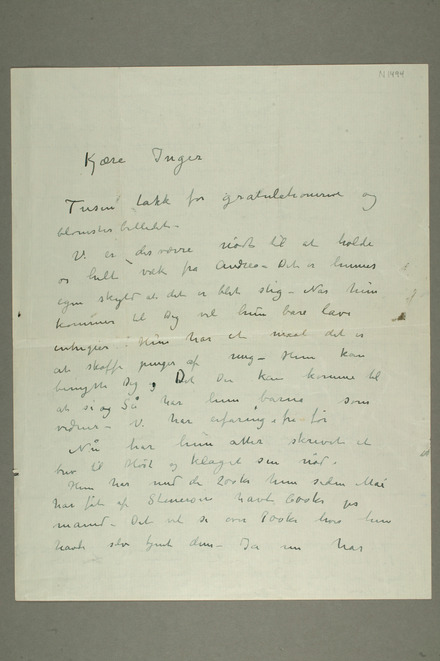 N 1494
Kjære Inger
Tusen takk for gratulationerne og
blomsterbilledet.
Vi er desværre nødt til at holde
os helt væk fra Andrea – Det er hennes
egen skyld at det er blet slig – Når hun
kommer til Dig vil hun bare lave
intriger. Hun har et maal det er
at skaffe penger af mig – Hun kan
benytte Dig, Det Du kan komme til
at si og Så har hun barna som
vidner – Vi har erfaring fra før
Nå har hun atter skrevet et
brev til og klaget sin nød.
Hun har med de 200 kr hun siden Mai
har fåt af Stenersen havt 600 kr pr
maaned – Det vil si over 800 kr hvis hun
havde selv tjent dem – Ja nu har